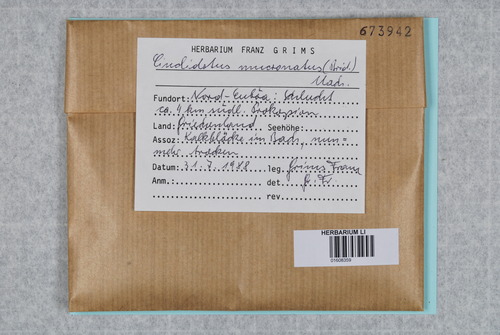 673942
HERBARIUM FRANZ GRIMS
Cinclidotus mucronatus (Brid.)
Mach.
Fundort: Nord-Euböa: Schlucht
ca. 4 km südl. Prokopion
Land: Griechenland Seehöhe:
Assoz: Kalkblöcke im Bach, nun=
mehr trocken
Datum: 31.7.1988 leg. Grims Franz
Anm.: det. G. Fr.
rev.
HERBARIUM LI
01608359